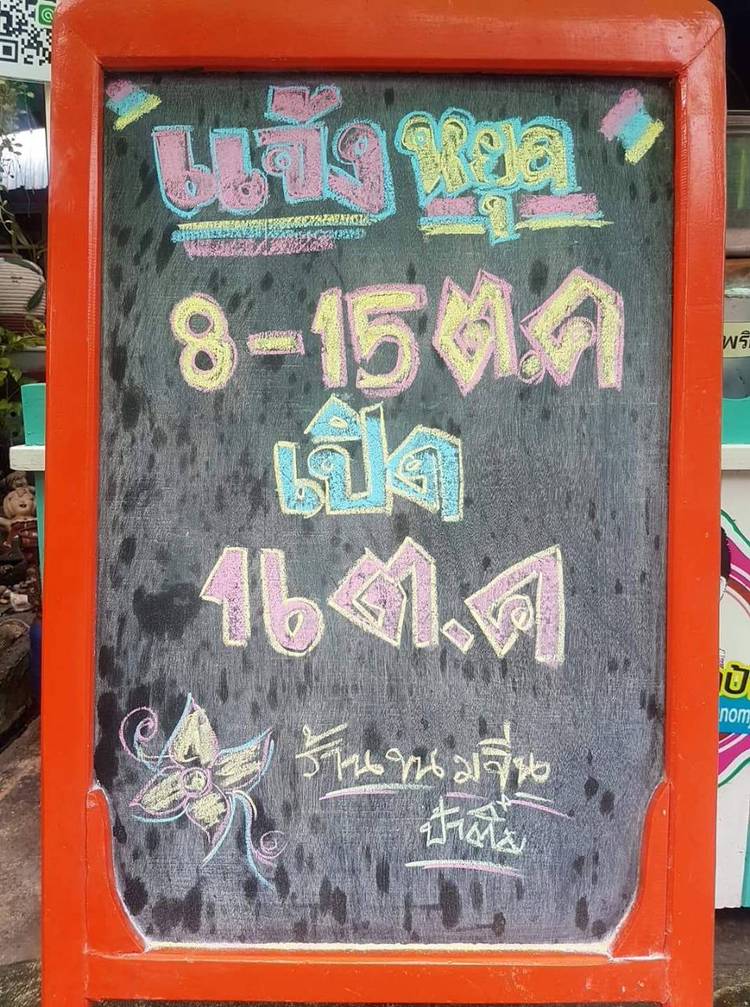 แจ้ง หยุด
8-15 ต.ค
เปิด
16 ต.ค
ร้านขนมจีน
ป้าติ๋ม
พริ
nom